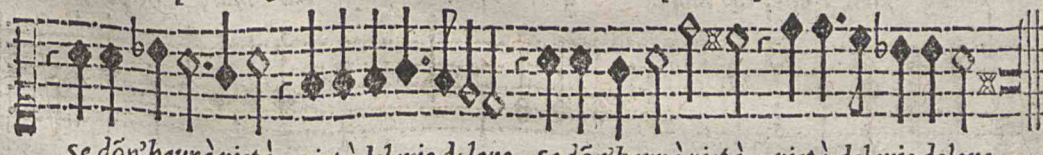 se dõn'haurà pietà pietà del mio dolore se dõn'haurà pietà pietà del mio dolore